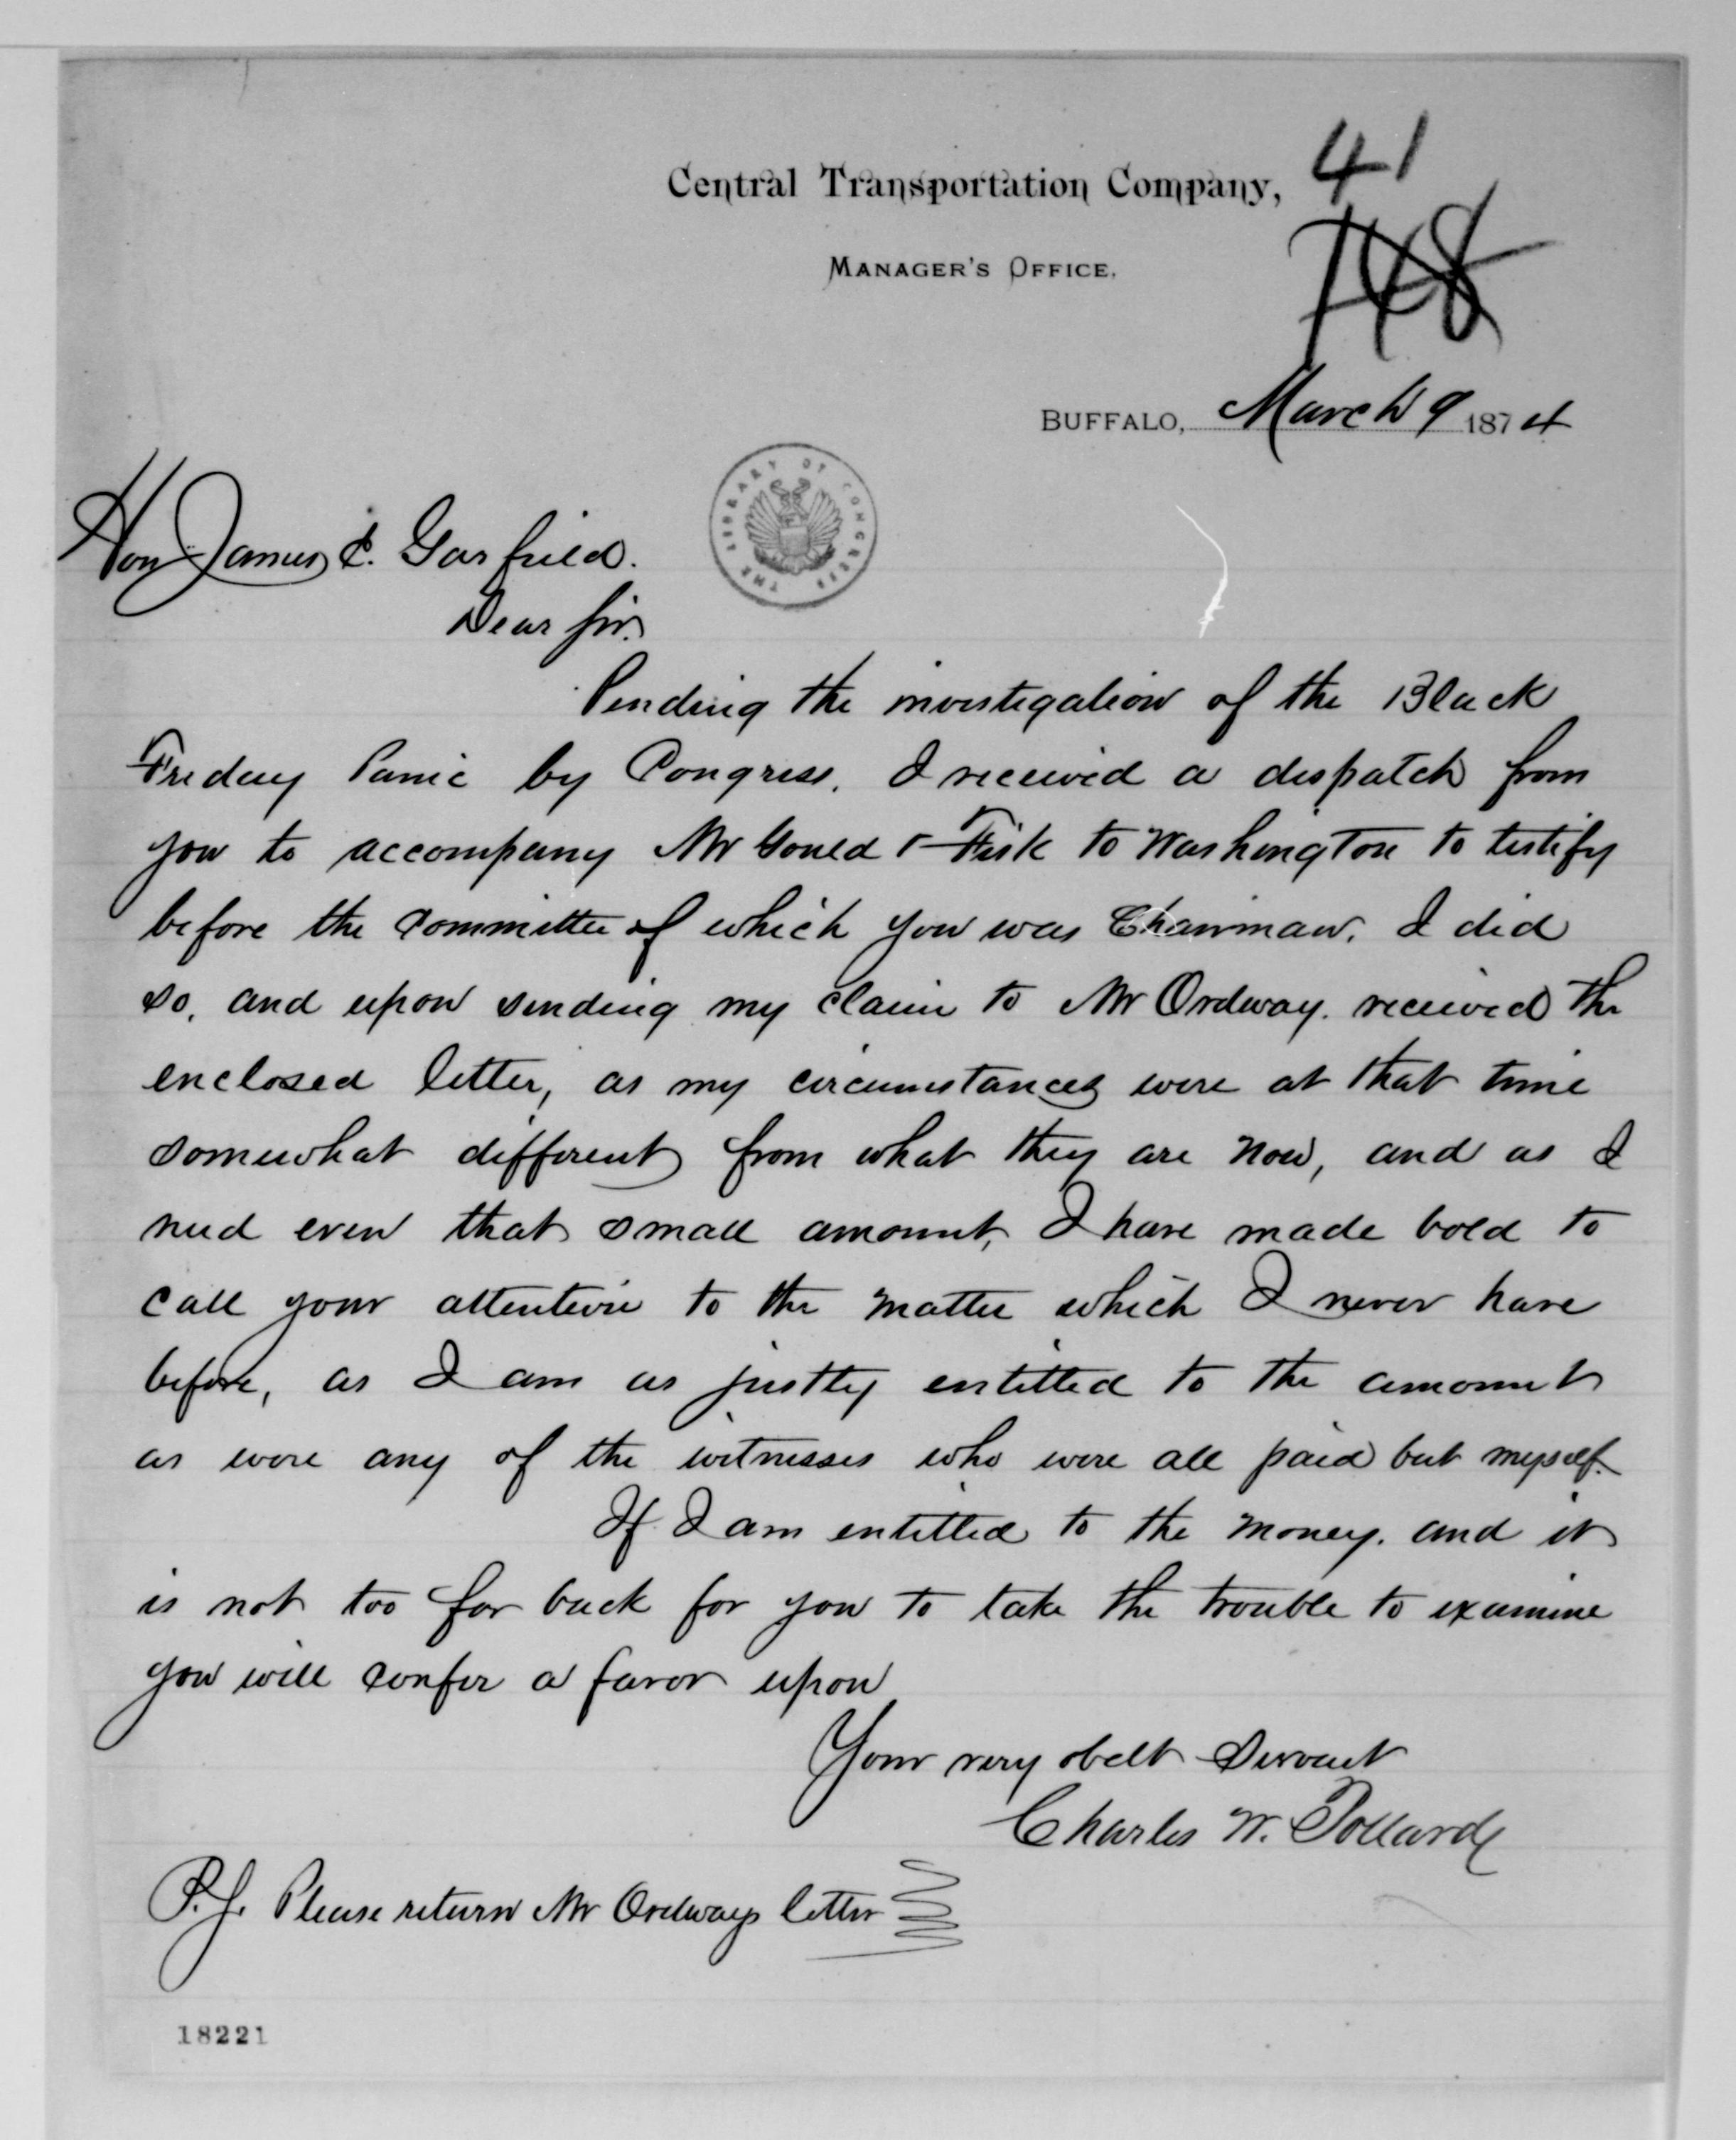 41
Central Transportation Company,
148
MANAGER'S OFFICE.
BUFFALO, March 9 1874
THE LIBRARY OF CONGRESS
Hon James C. Garfield.
Dear Sir.
Pending the investigation of the Black
Friday Panic by Congress, I received a dispatch from
you to accompany Mr Gould & Fisk to Washington to testify
before the Committee of which you was Chairman. I did
so, and upon sending my claim to Mr Ordway. received the
enclosed letter, as my circumstances were at that time
somewhat different from what they are now, and as I
need even that small amount, I have made bold to
call your attention to the matter which I never have
before, as I am as justly entitled to the amount
as were any of the witnesses who were all paid but myself.
If I am entitled to the money. and it
is not too far back for you to take the trouble to examine
you will confer a favor upon
Your very obdt Servant
Charles W. Pollard
P.S. Please return Mr Ordways letter
18221